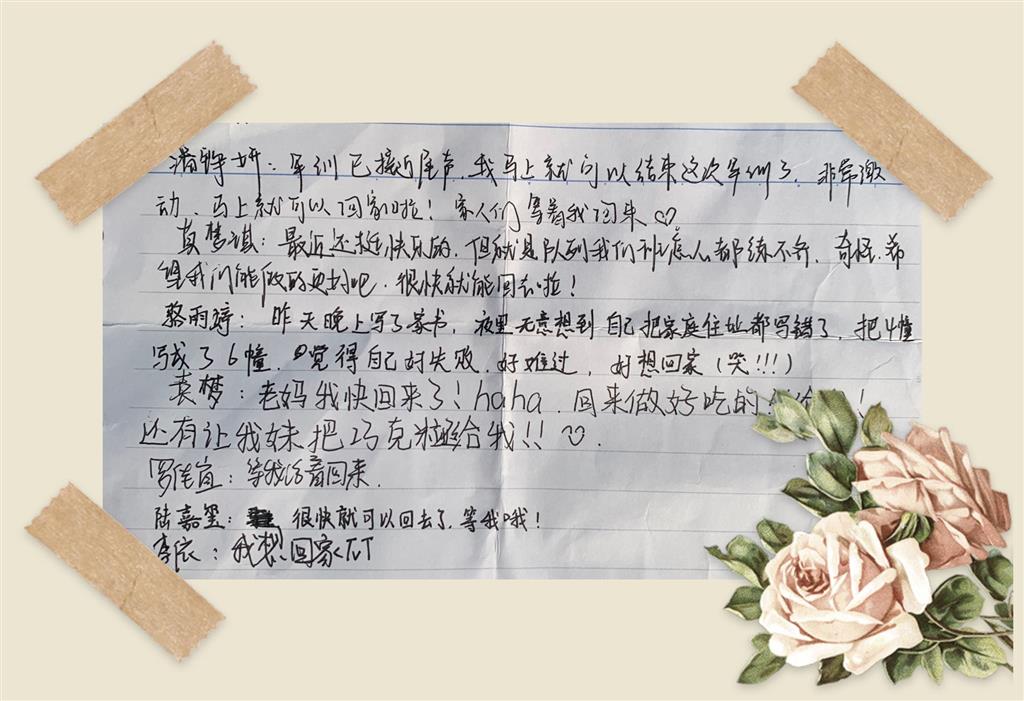 潘铧妍：军训已接近尾声，我马上就可以结束这次军训了，非常激
动、马上就可以回家啦！家人们等着我回来♡
袁梦淇：最近还挺快乐的，但就是队列我们班感人都练不齐，奇怪，希
望我们能做的更好吧，很快就能回去啦！
骆雨婷：昨天晚上写了家书，夜里无意想到自己把家庭住址都写错了，把4幢
写成了6幢，觉得自己好失败，好难过，好想回家（哭!!!）
龚梦：老妈我快回来了！haha，回来做好吃的
还有让我妹把巧克粒给我!!
罗佳宜：等我活着回来.
陆嘉玺：很快就可以回去了，等我哦！
李依：我想回家TVT